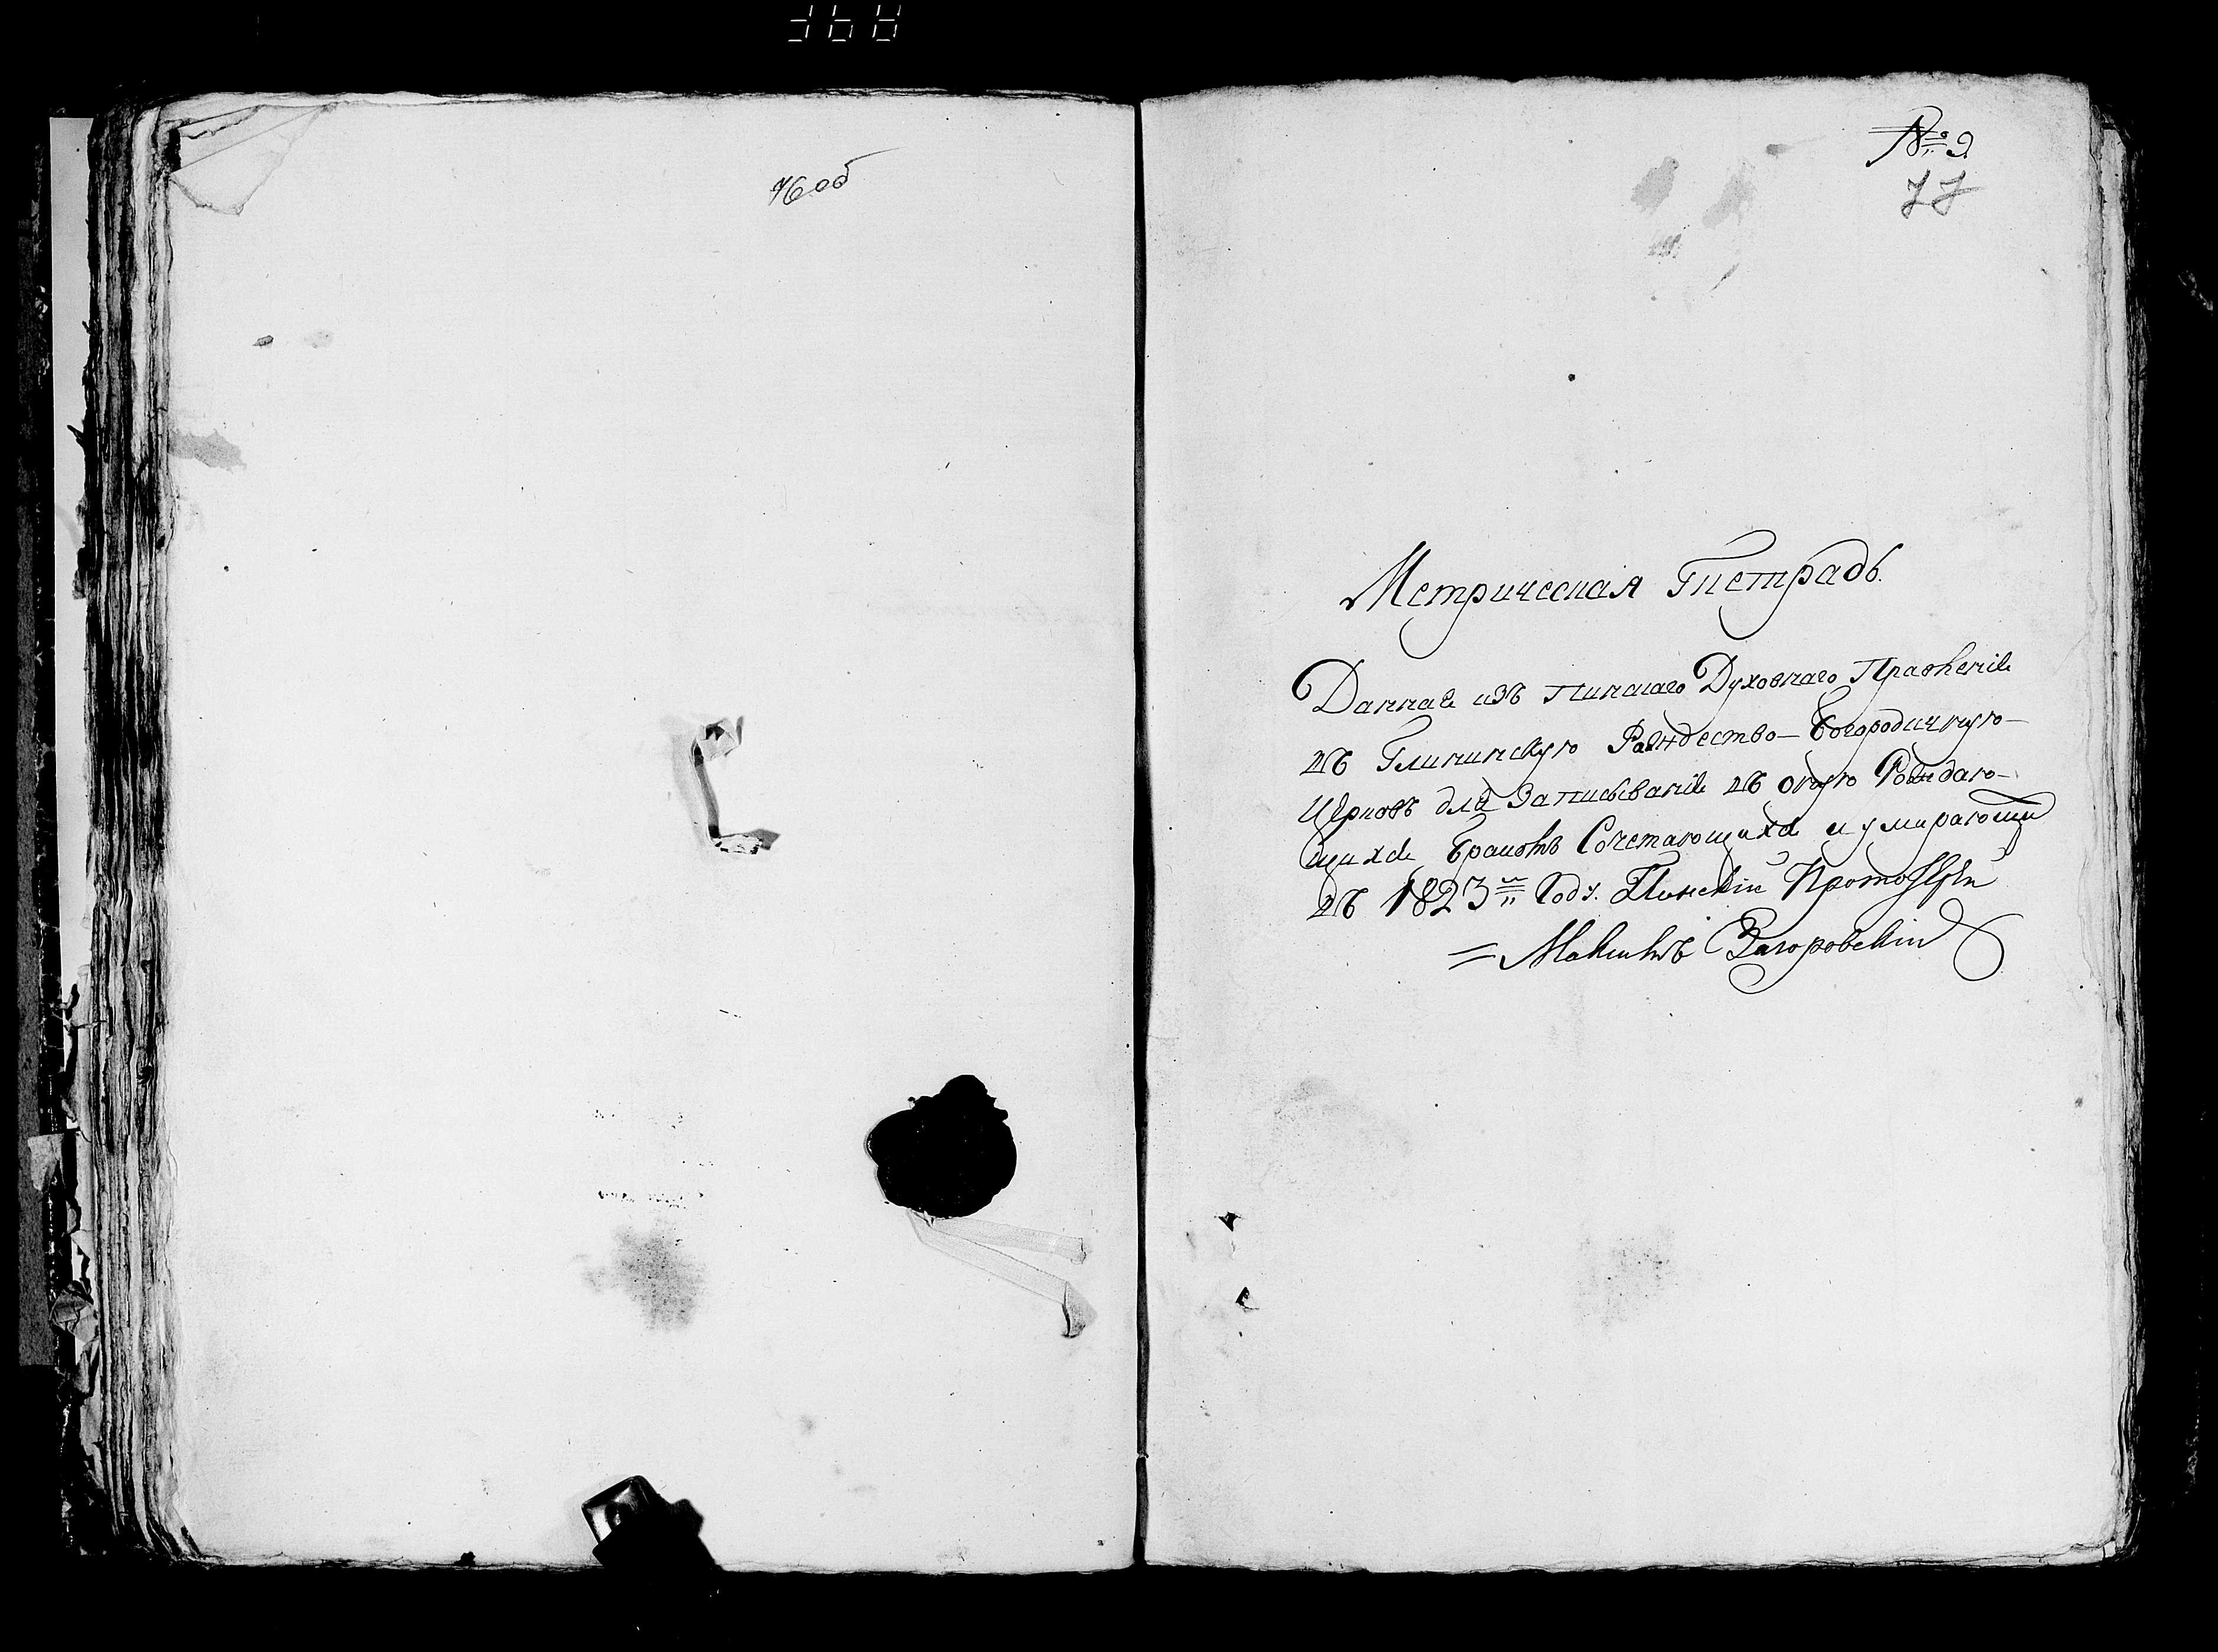 76 об
№ 9.
77
Метрическая Тетрадь.
Данная изъ Пинскаго Духовнаго Правленія
въ Глининскую Рождество-Богородичную
Церковь для Записыванія въ оную Раждаю-
щихся Бракомъ Сочетающихся и умирающи
въ 1823 м Году. Пинскій Протоіерей
= Максимъ Загоровскій